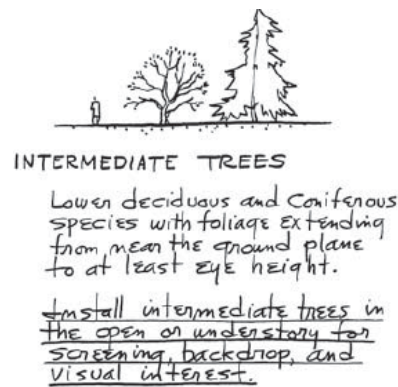 INTERMEDIATE TREES
Lower deciduous and coniferous
species with foliage extending
from near the ground plane
to at least eye height.
Install intermediate trees in
the open or understory for
screening, backdrop, and
visual interest.